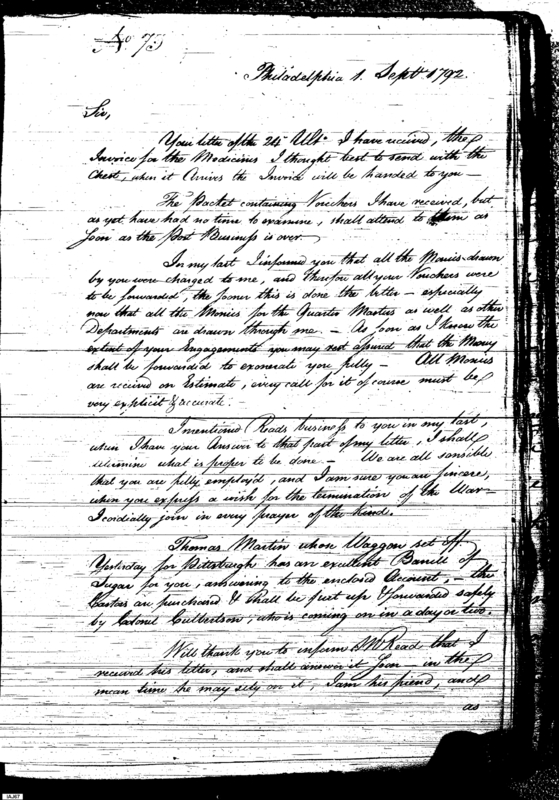 No 73
Philadelphia 1. Sept. 1792.
Sir,
Your letter of the 24 Ulto. I have received, the
Invoice for the Medicines I thought best to send with the
Chest, when it Arrives the Invoice will be handed to you —
The Packet containing Vouchers I have received, but
as yet have had no time to examine, shall attend to them as
soon as the Post Business is over.
In my last I informed you that all the Monies drawn
by you were charged to me, and therefore all your Vouchers were
to be forwarded, the sooner this is done the better — especially
now that all the Monies for the Quarter Masters as well as other
Departments are drawn through me. — As soon as I know the
extent of your Engagements you may rest assured that the Money
shall be forwarded to exonerate you fully — All Monies
are received on Estimate, every call for it of course must be
very explicit & accurate.
I mentioned Reads business to you in my last,
when I have your Answer to that part of my letter, I shall
determine what is proper to be done — We are all sensible
that you are fully employ'd, and I am sure you are sincere,
when you express a wish for the termination of the War —
I cordially join in every prayer of the kind.
Thomas Martin whose Waggon set off
Yesterday for Pittsburgh has an excellent Barrell of
Sugar for you, answering to the enclosed Account, — the
Castors are purchased & shall be put up & forwarded safely
by Colonel Culbertson, who is coming on in a day or two.
Will thank you to inform Mr Read that I
received his letter, and shall answer it soon — in the
mean time he may rely on it, I am his friend, and
as
IAJ67